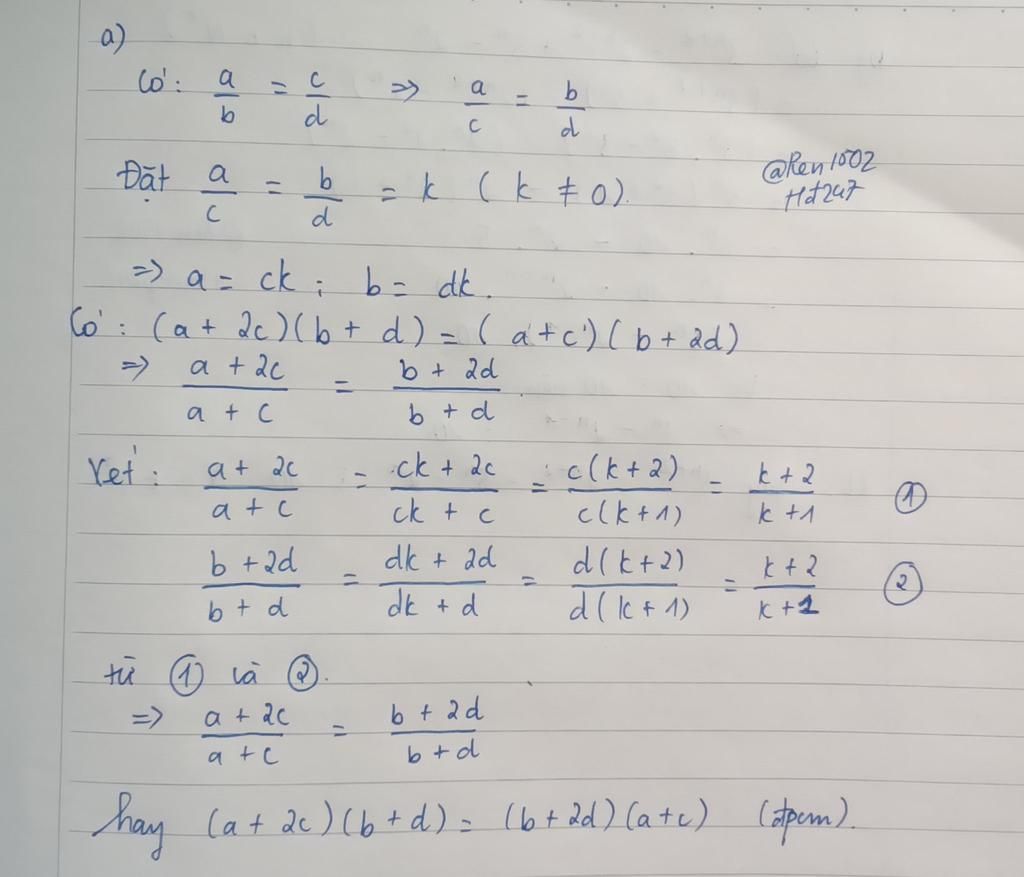 a)
Có: a/b = c/d => a/c = b/d
Đặt a/c = b/d = k (k ≠ 0).
@Ren1502
Hd247
=> a = ck ; b = dk.
Có: (a + 2c)(b + d) = (a + c)(b + 2d)
=> (a + 2c)/(a + c) = (b + 2d)/(b + d)
Xét: (a + 2c)/(a + c) = (ck + 2c)/(ck + c) = c(k+2)/c(k+1) = (k+2)/(k+1) ①
(b + 2d)/(b + d) = (dk + 2d)/(dk + d) = d(k+2)/d(k+1) = (k+2)/(k+1) ②
từ ① và ②.
=> (a + 2c)/(a + c) = (b + 2d)/(b + d)
hay (a + 2c)(b + d) = (b + 2d)(a + c) (đpcm).